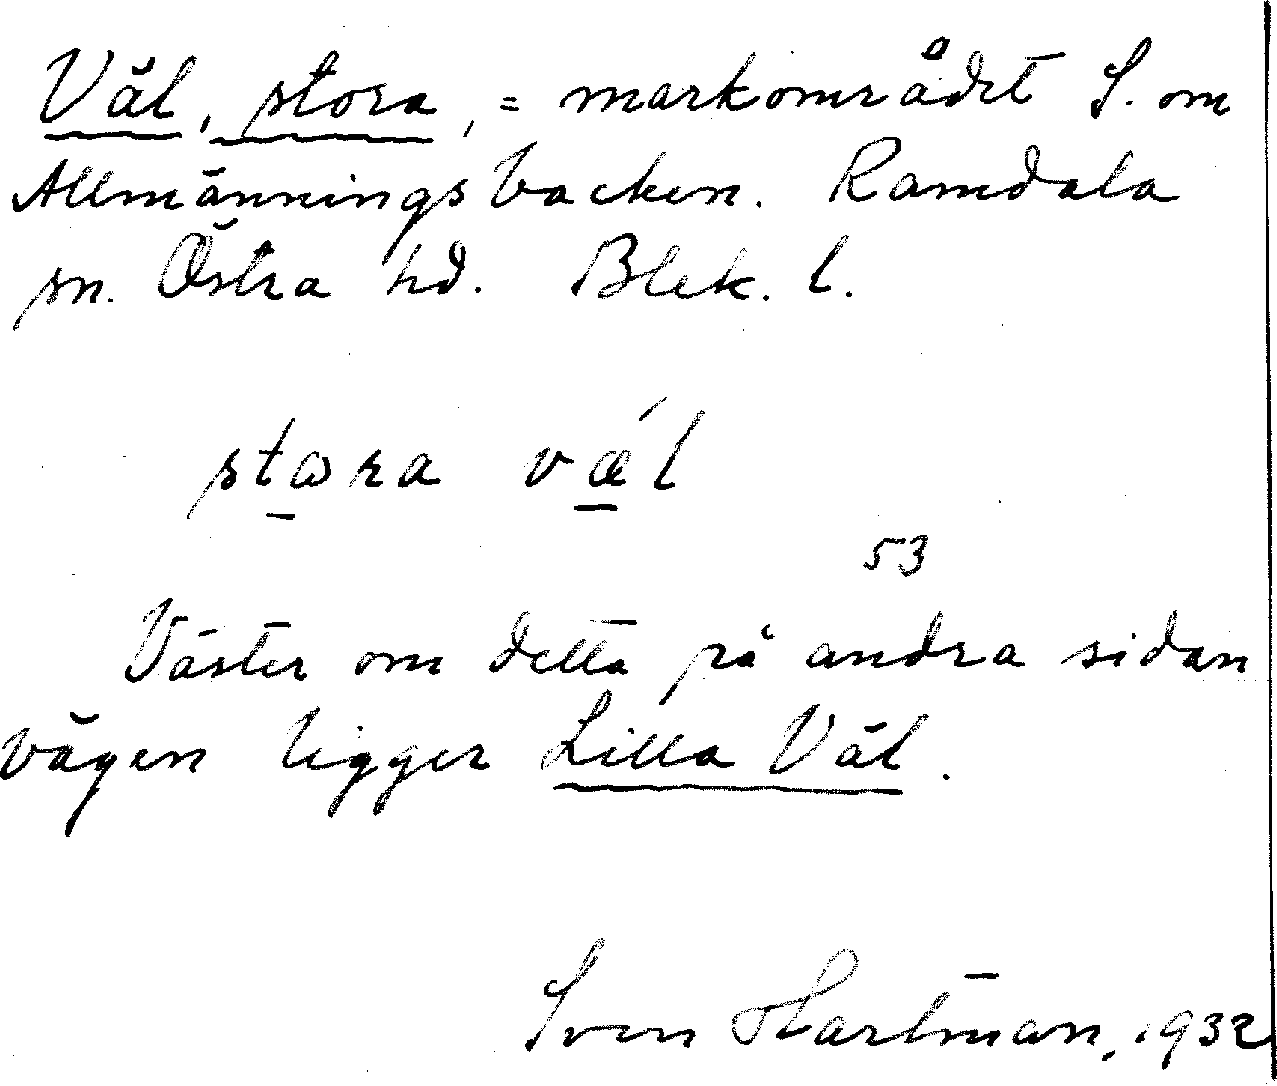 Väl, stora, = markområdet S. om
Allmänningsbacken. Ramdala
sn. Östra hd. Blek. l.
stωra vǽl
53
Väster om detta på andra sidan
vägen ligger Lilla Väl.
Sven Hartman, 1932